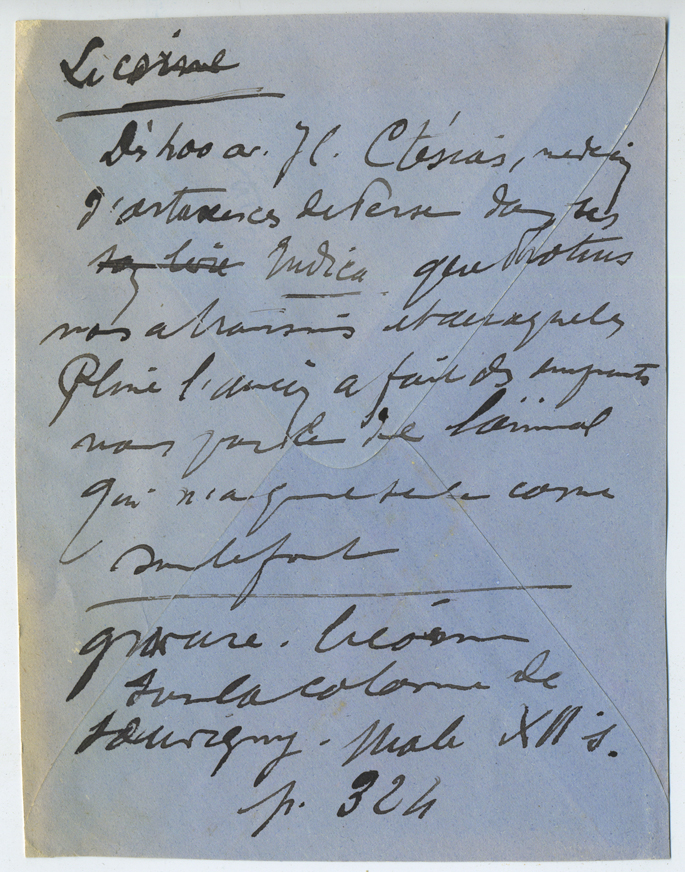 Licorne
Dès 400 av. J C. Ctésias, médecin
d'artaxerces de Perse dans ses
son livre Indica que Photius
nous a transmis et auxquels
Pline l'ancien a fait des emprunts
nous parle de l'animal
qui n'a qu'une seule corne
sur le front
gravure. licorne
sur la colonne de
Souvigny. Male XII s.
p. 324